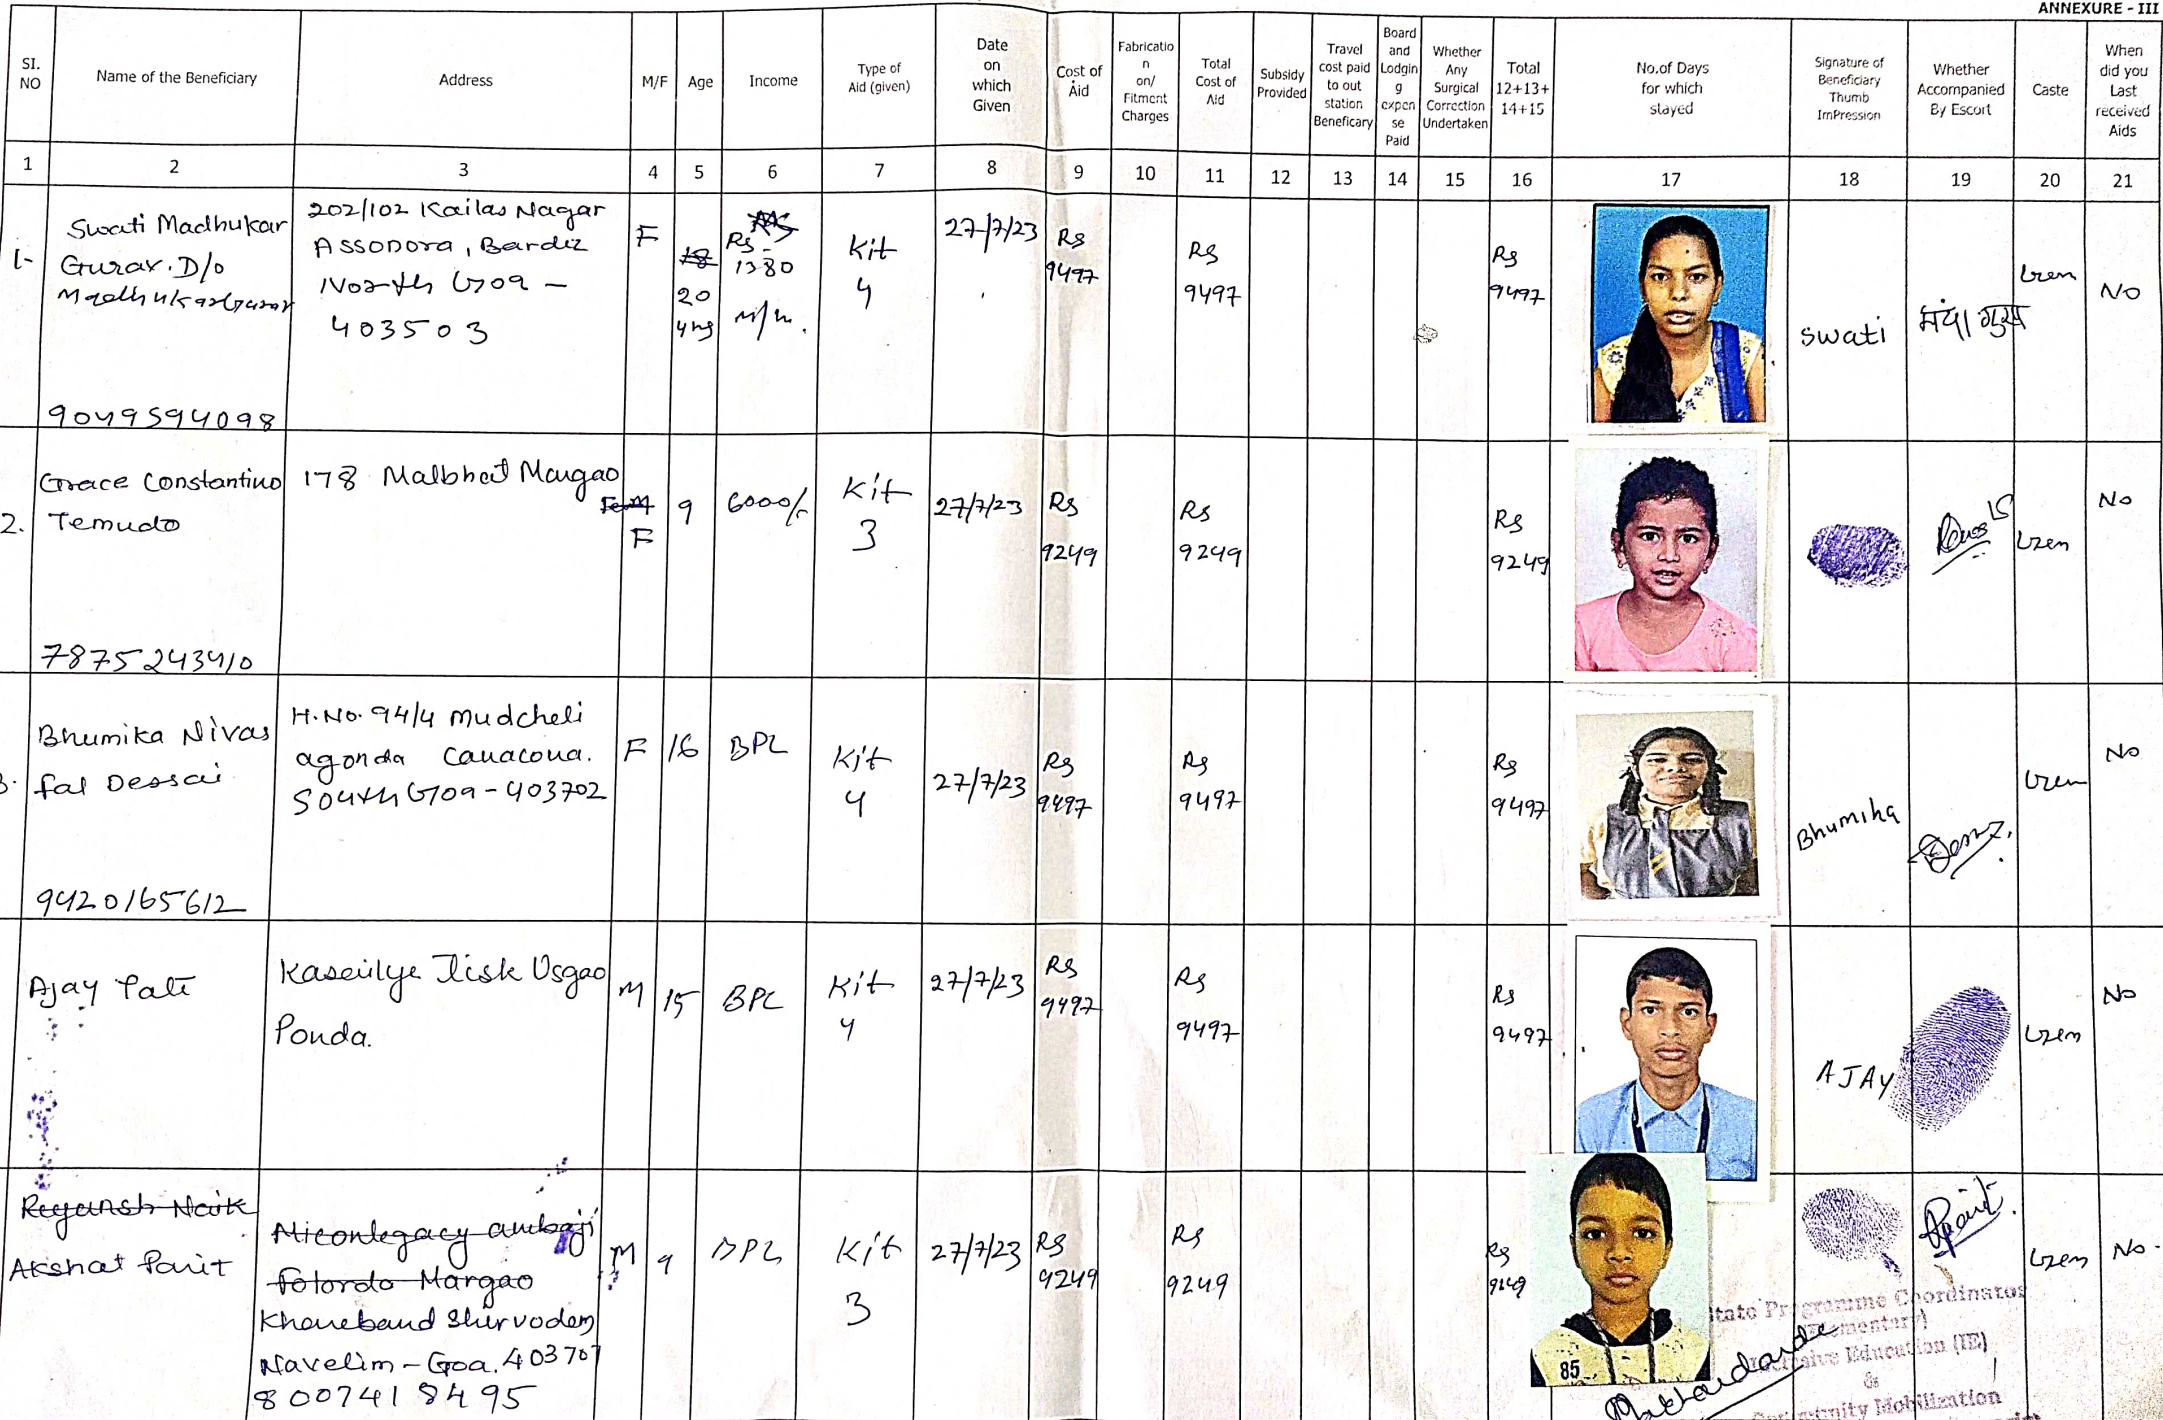 ANNEXURE - III
SI. NO
Name of the Beneficiary
Address
M/F
Age
Income
Type of Aid (given)
Date on which Given
Cost of Aid
Fabricatio n on/ Fitment Charges
Total Cost of Aid
Subsidy Provided
Travel cost paid to out station Beneficary
Board and Lodgin g expen se Paid
Whether Any Surgical Correction Undertaken
Total 12+13+ 14+15
No.of Days for which stayed
Signature of Beneficiary Thumb ImPression
Whether Accompanied By Escort
Caste
When did you Last received Aids
1 2 3 4 5 6 7 8 9 10 11 12 13 14 15 16 17 18 19 20 21
1-
Swati Madhukar
Gurav. D/o
Madhukar Gurav
9049594098
202/102 Kailas Nagar
Assonora, Bardez
North Goa -
403503
F
18
20
yrs
Rs
1380
m/m.
Kit
4
27/7/23
Rs
9497
Rs
9497
Rs
9497
Swati
Gen
No
2.
Grace Constantino
Temudo
7875243410
178 Malbhat Margao
F
9
6000/-
Kit
3
27/7/23
Rs
9249
Rs
9249
Rs
9249
Gen
No
3.
Bhumika Nivas
fal Dessai
9420165612
H.No. 94/4 mudcheli
agonda Canacona.
South Goa - 403702
F
16
BPL
Kit
4
27/7/23
Rs
9497
Rs
9497
Rs
9497
Bhumika
Gen
No
Ajay
Usgao
Ponda.
M
15
BPL
Kit
4
27/7/23
Rs
9497
Rs
9497
Rs
9497
AJAY
Gen
No
Reyansh Naik
Akshat Parit
fatorda Margao
Shirvodem
Navelim - Goa. 403707
8007418495
M
9
BPL
Kit
3
27/7/23
Rs
9249
Rs
9249
Rs
9249
85
Gen
No -
State Programme Coordinator
(Elementary)
Inclusive Education (IE)
&
Community Mobilization